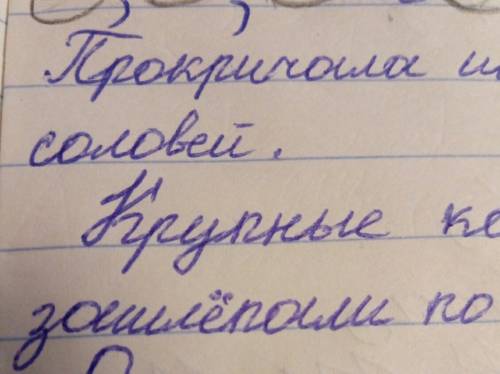 Прокричала
соловей.
Крупные
зашлёпали по